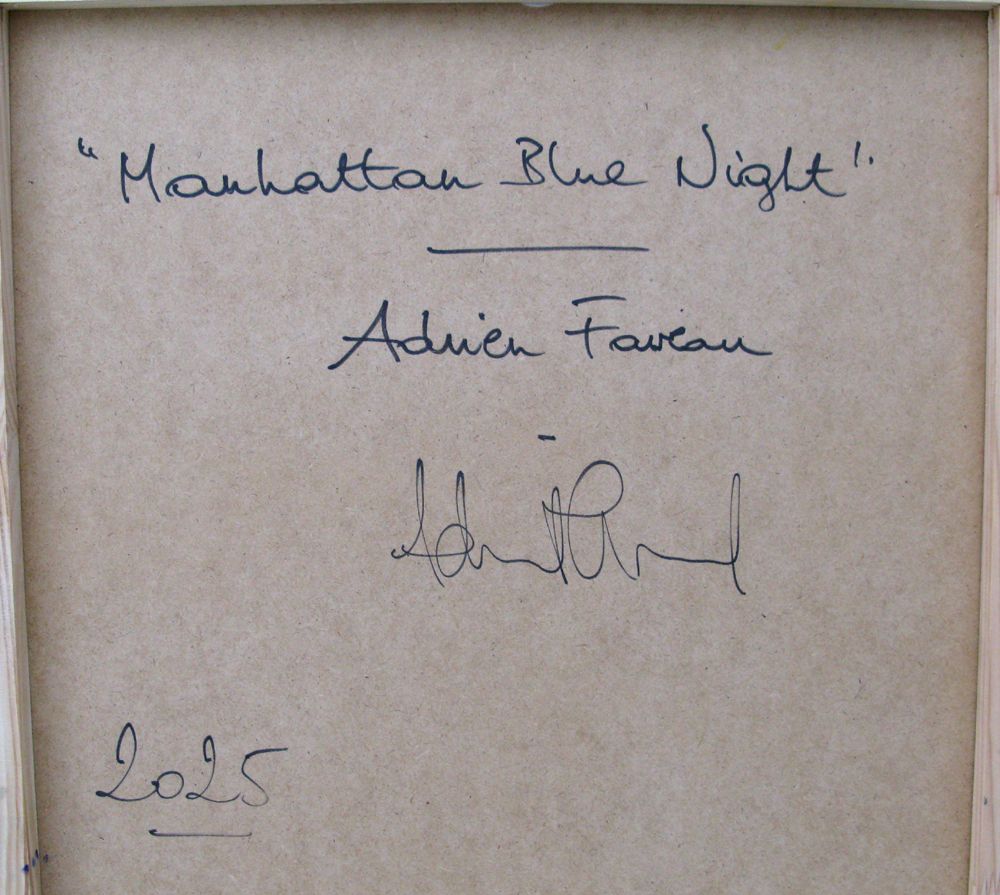 "Manhattan Blue Night".
Adrien Faveau
2025